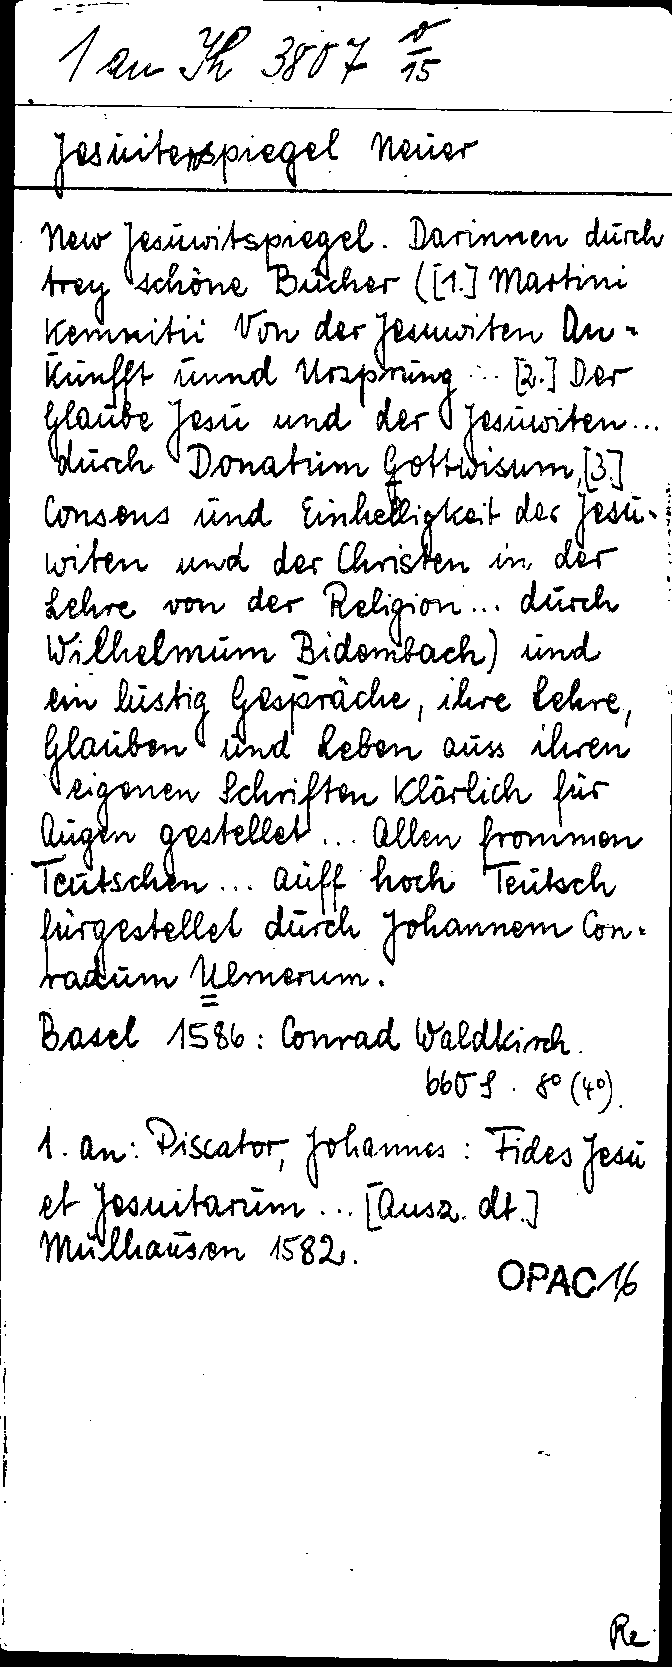 1 an Th 3807 v/15
Jesuitenspiegel Neuer
New Jesuwitspiegel. Darinnen durch
trey schöne Bücher ([1.] Martini
Kemnitii Von der Jesuwiten An-
kunfft unnd Ursprung ... [2.] Der
Glaube Jesu und der Jesuwiten...
durch Donatum Gottwisum, [3.]
Consens und Einhelligkeit der Jesu-
witen und der Christen in der
Lehre von der Religion... durch
Wilhelmum Bidembach) und
ein lustig Gespräche, ihre Lehre,
Glauben und Leben auss ihren
eigenen Schriften klärlich für
Augen gestellet... Allen frommen
Teutschen... auff hoch Teutsch
fürgestellet durch Johannem Con-
radum Ulmerum.
Basel 1586: Conrad Waldkirch.
660 S. 8° (4°).
1. an: Piscator, Johannes: Fides Jesu
et Jesuitarum... [Ausz. dt.]
Mülhausen 1582.
OPAC 16
Re